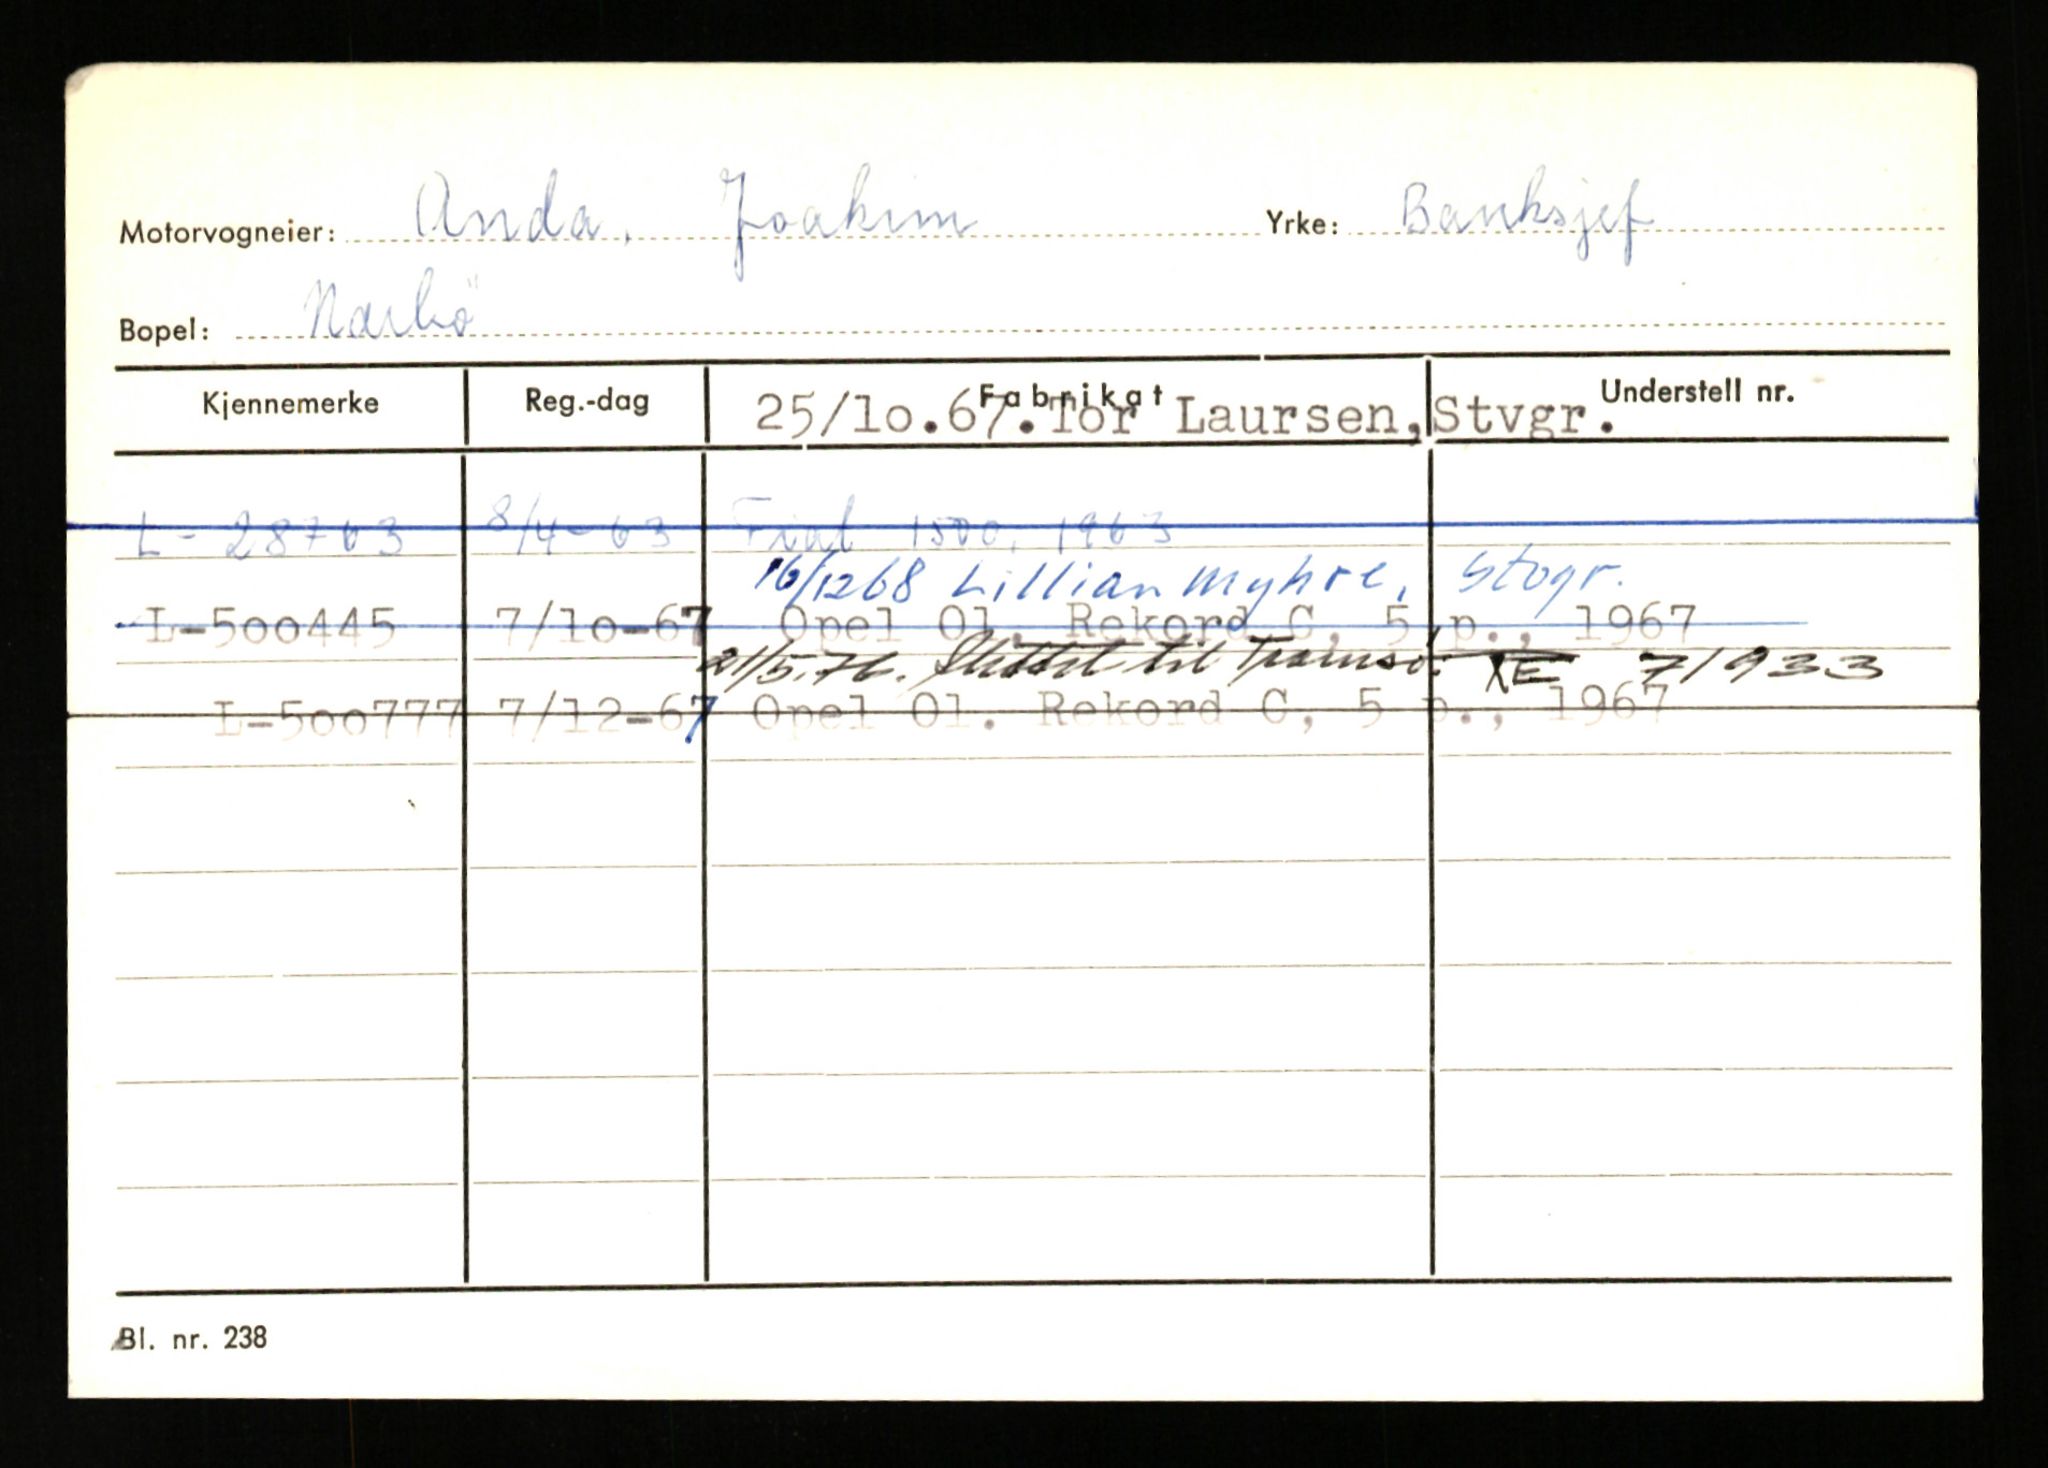 Motorvogneier: Anda, Joakim Yrke: Banksjef
Bopel: Narbö
Kjennemerke Reg.-dag Fabrikat Understell nr.
25/10.67. Tor Laursen, Stvgr.
L - 28763 8/4-63 Fiat 1500, 1963
16/12 68 Lillian Myhre, Stvgr.
L-500445 7/10-67 Opel Ol. Rekord C, 5 p., 1967
21/5.76. Slettet til Tromsø. XE 71933
L-500777 7/12-67 Opel Ol. Rekord C, 5 p., 1967
Bl. nr. 238